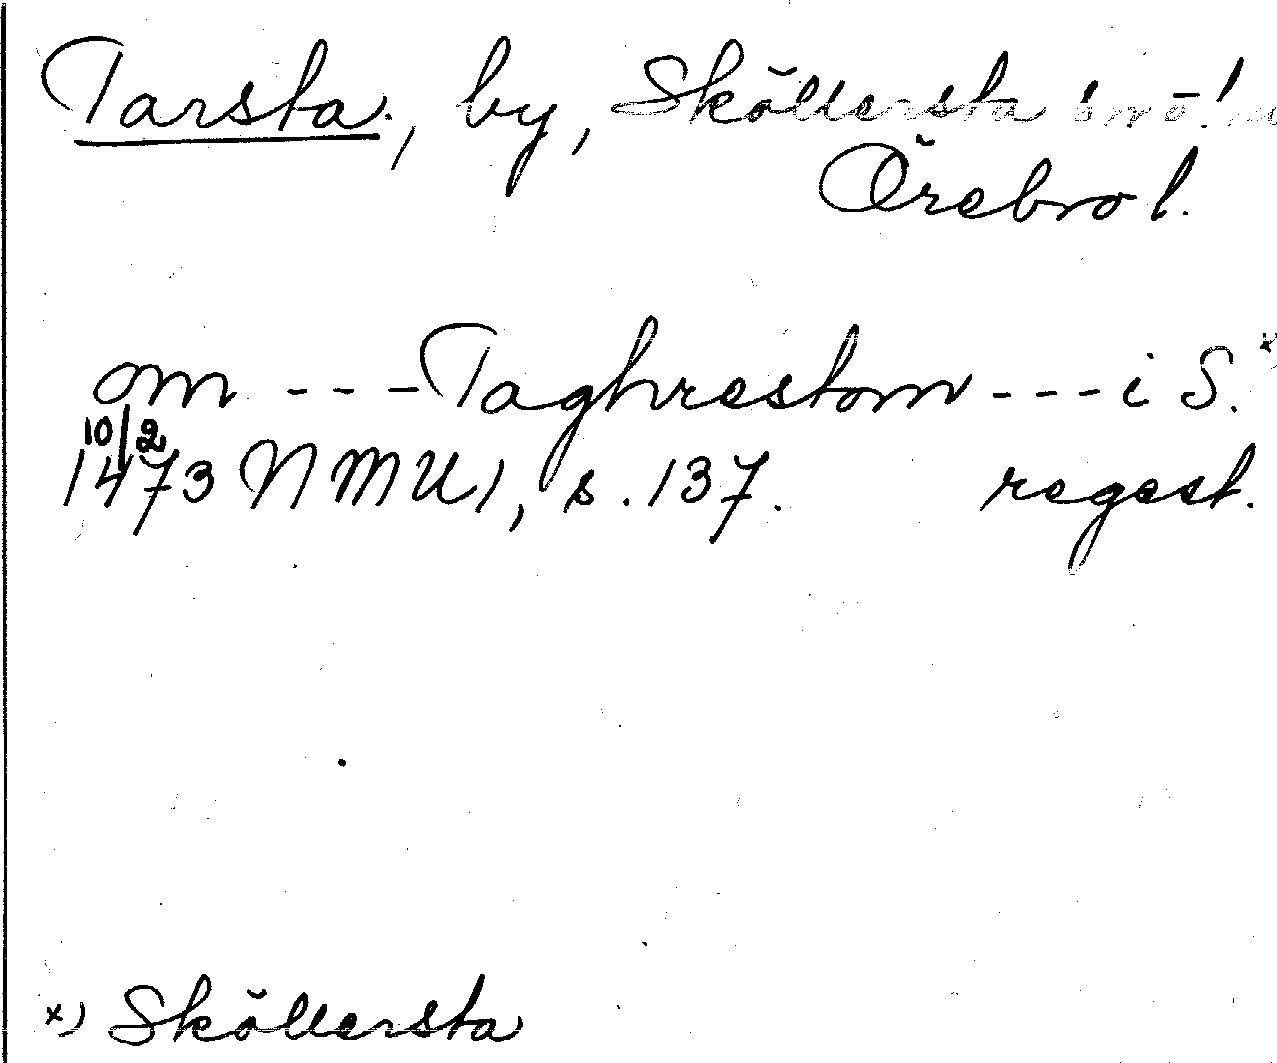 Tarsta, by, Sköllersta
Örebro l.
om --- Taghrestom --- i S. x)
10/2
1473 NMU 1, s. 137. regest.
x) Sköllersta